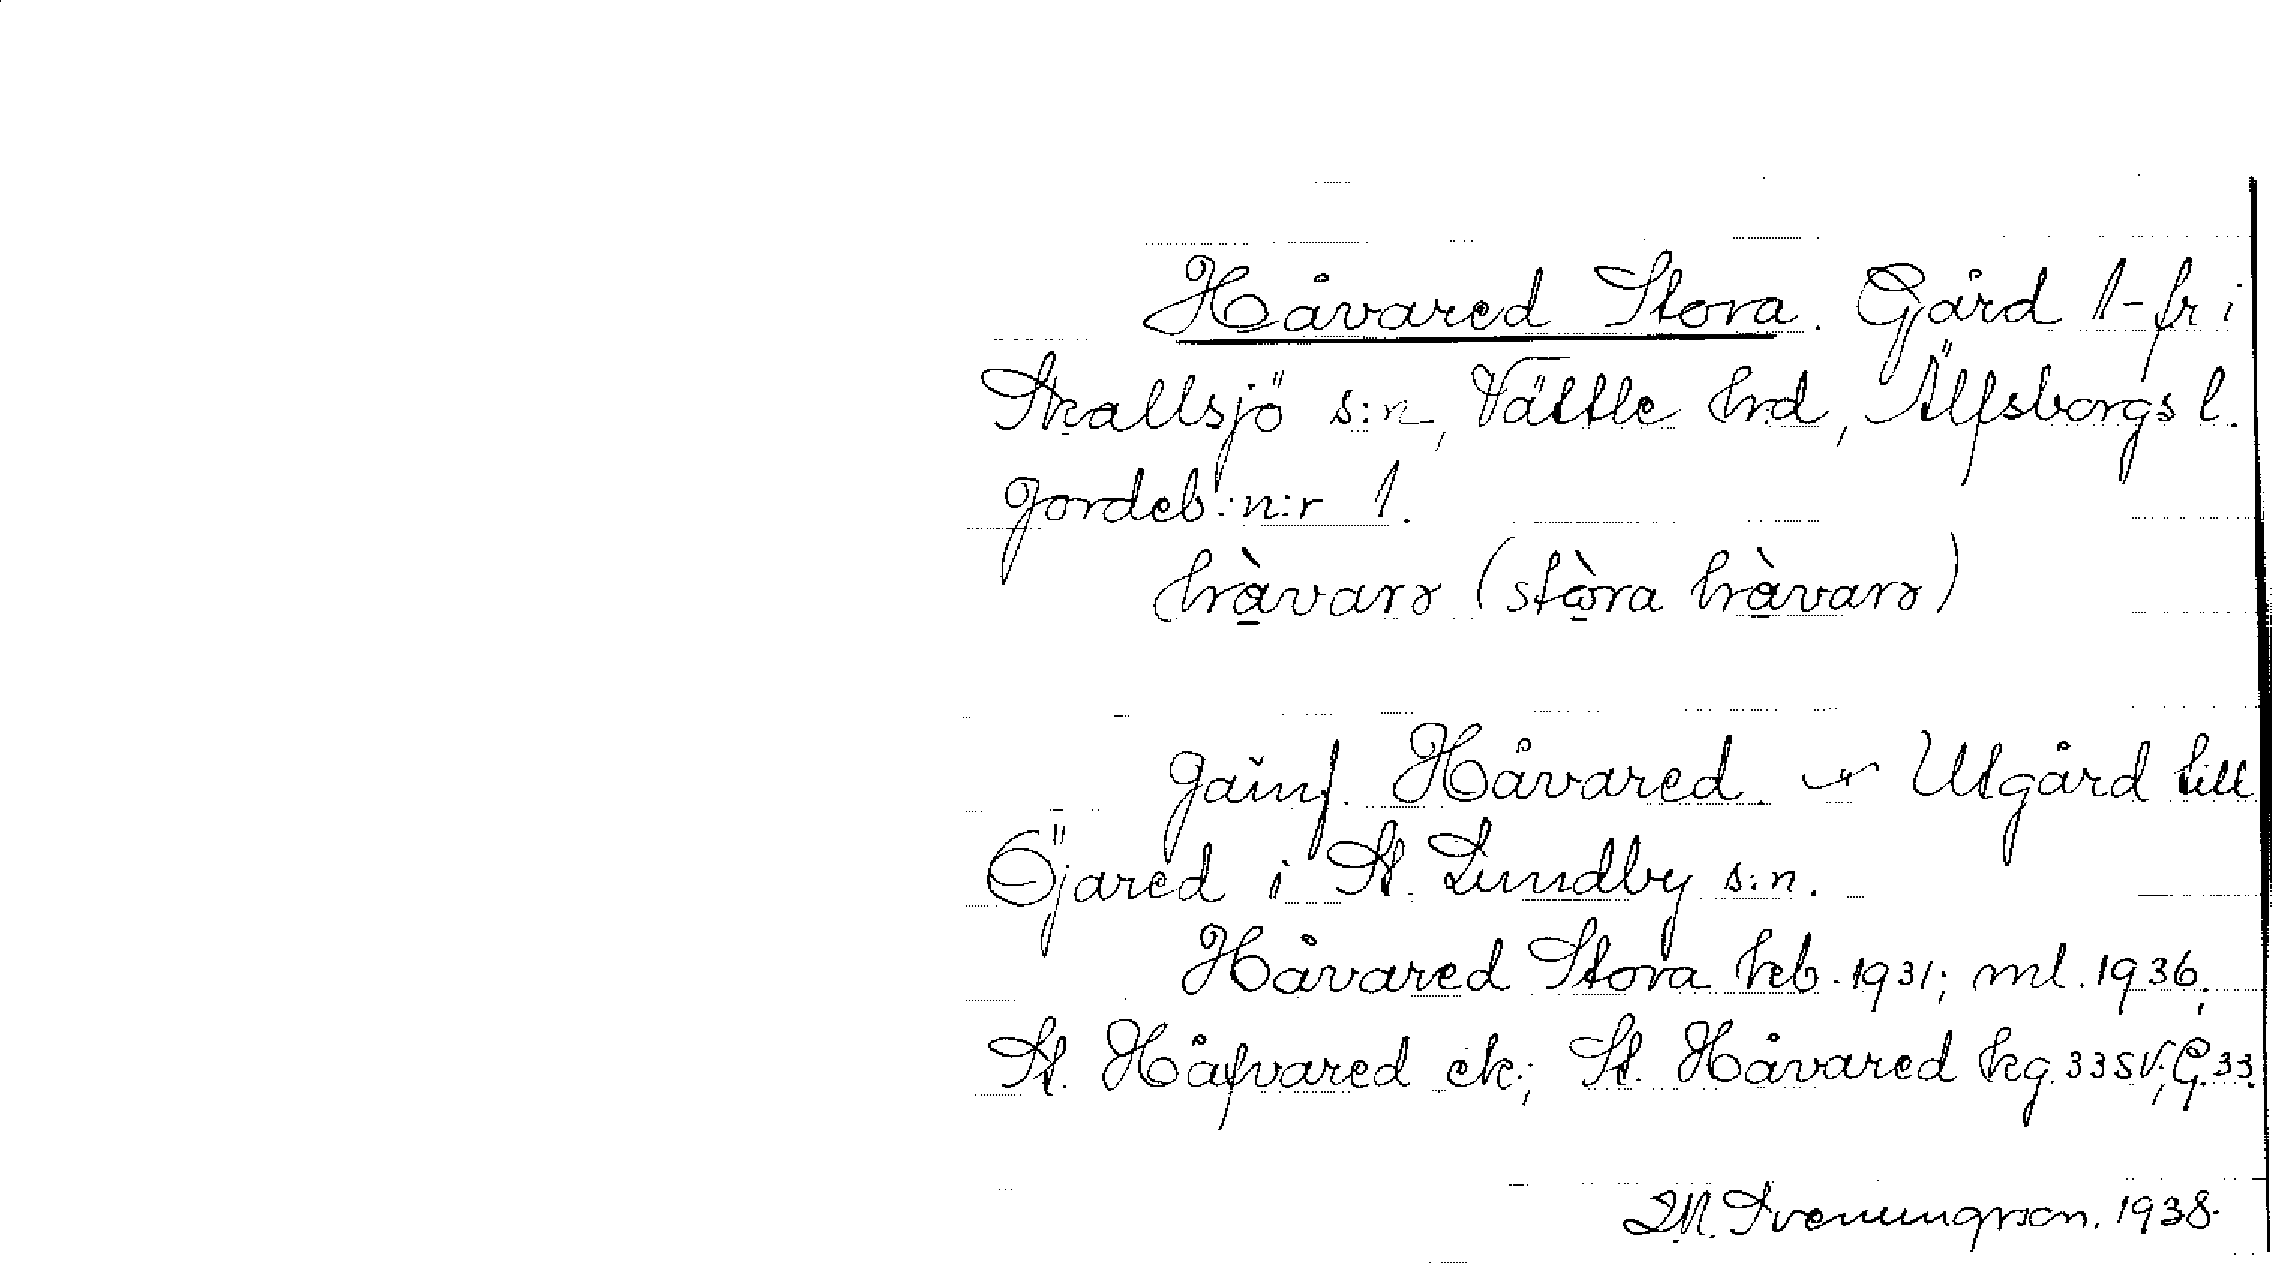 Håvared Stora. Gård 1-fr i
Skallsjö s:n, Vättle hrd, Älfsborgs l.
Jordeb:n:r 1.
hàvarɜ (stòra hàvarɜ)
Jämf. Håvared. Utgård till
Öjared i St. Lundby s:n.
Håvared Stora keb. 1931; ml. 1936;
St. Håfvared ek.; St. Håvared kg. 33 SV; G. 33.
Svenungsson. 1938.